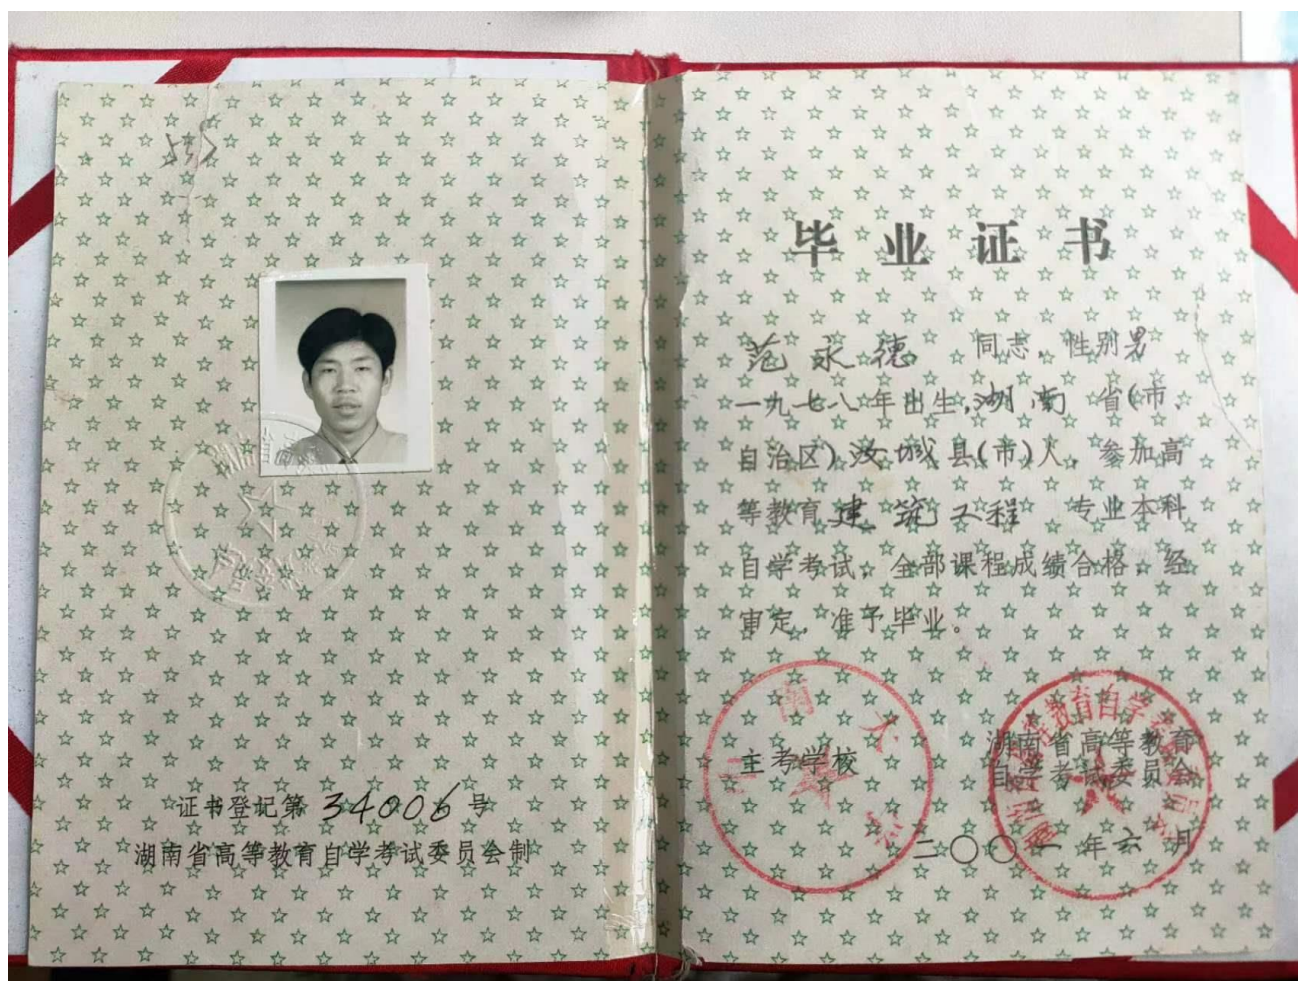 证书登记第34006号
湖南省高等教育自学考试委员会制
毕业证书
范永德 同志，性别男
一九七八年出生，湖南 省(市、
自治区)汝城县(市)人，参加高
等教育建筑工程 专业本科
自学考试，全部课程成绩合格，经
审定，准予毕业。
主考学校
南大
湖南省高等教育
自学考试委员会
二〇〇 年六月